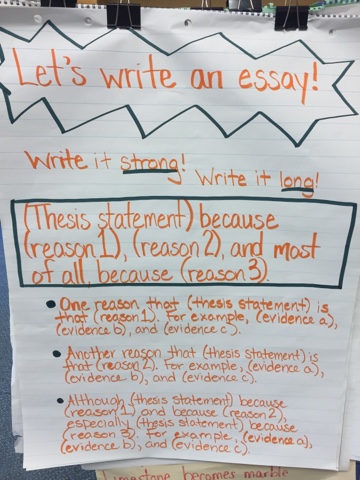 Let's write an essay!
Write it strong!
Write it long!
(Thesis statement) because
(reason 1), (reason 2), and most
of all, because (reason 3).
• One reason that (thesis statement) is
that (reason 1). For example, (evidence a),
(evidence b), and (evidence c).
• Another reason that (thesis statement) is
that (reason 2). For example, (evidence a),
(evidence b), and (evidence c).
• Although (thesis statement) because
(reason 1) and because (reason 2),
especially (thesis statement) because
(reason 3). For example, (evidence a),
(evidence b), and (evidence c).
Limestone becomes marble